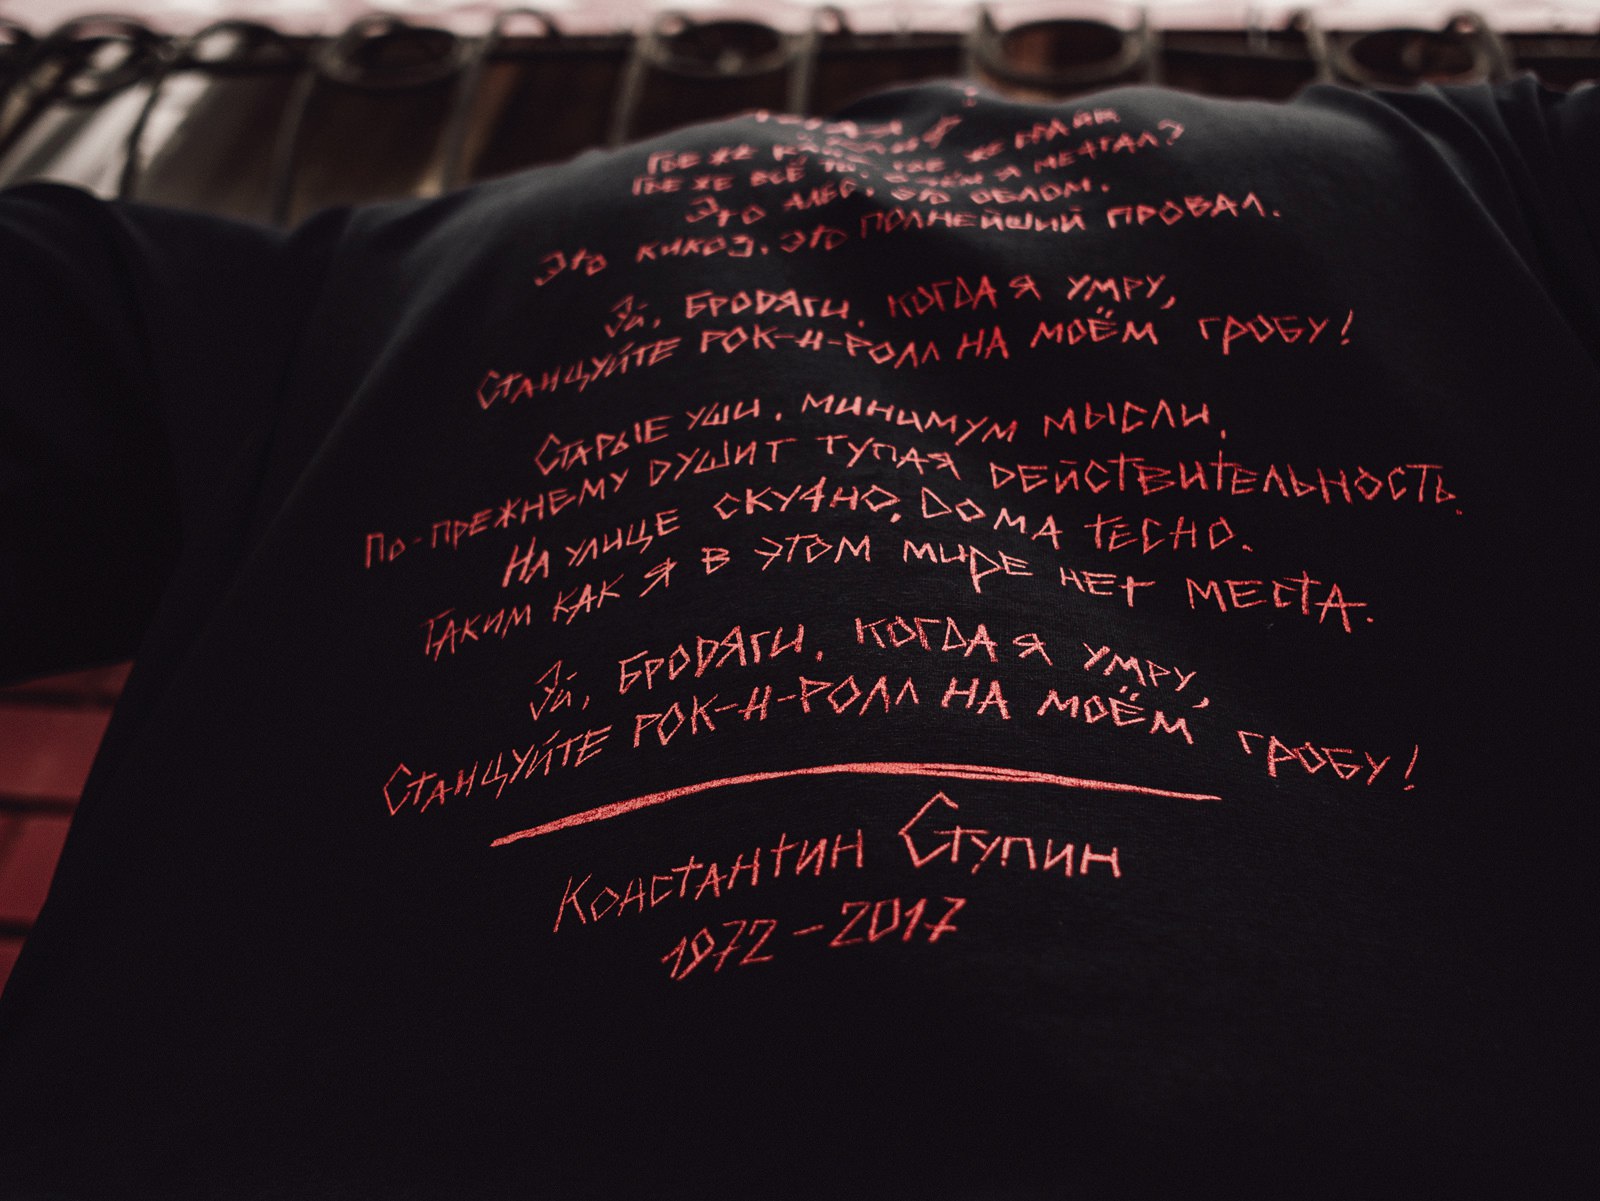 Где же
Где же всё то, о чём я мечтал?
Это облом.
Это кикоз, это полнейший провал.
Эй, бродяги, когда я умру,
Станцуйте рок-н-ролл на моём гробу!
Старые уши, минимум мысли,
По-прежнему душит тупая действительность.
На улице скучно, дома тесно.
Таким как я в этом мире нет места.
Эй, бродяги, когда я умру,
Станцуйте рок-н-ролл на моём гробу!
Константин Ступин
1972-2017